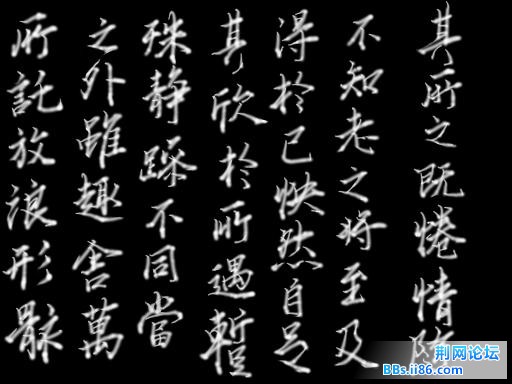 其所之既惓情随
不知老之将至及
得於己怏然自足
其欣於所遇蹔
殊静躁不同當
之外雖趣舍萬
所託放浪形骸
荆网论坛
BBs.ii86.com